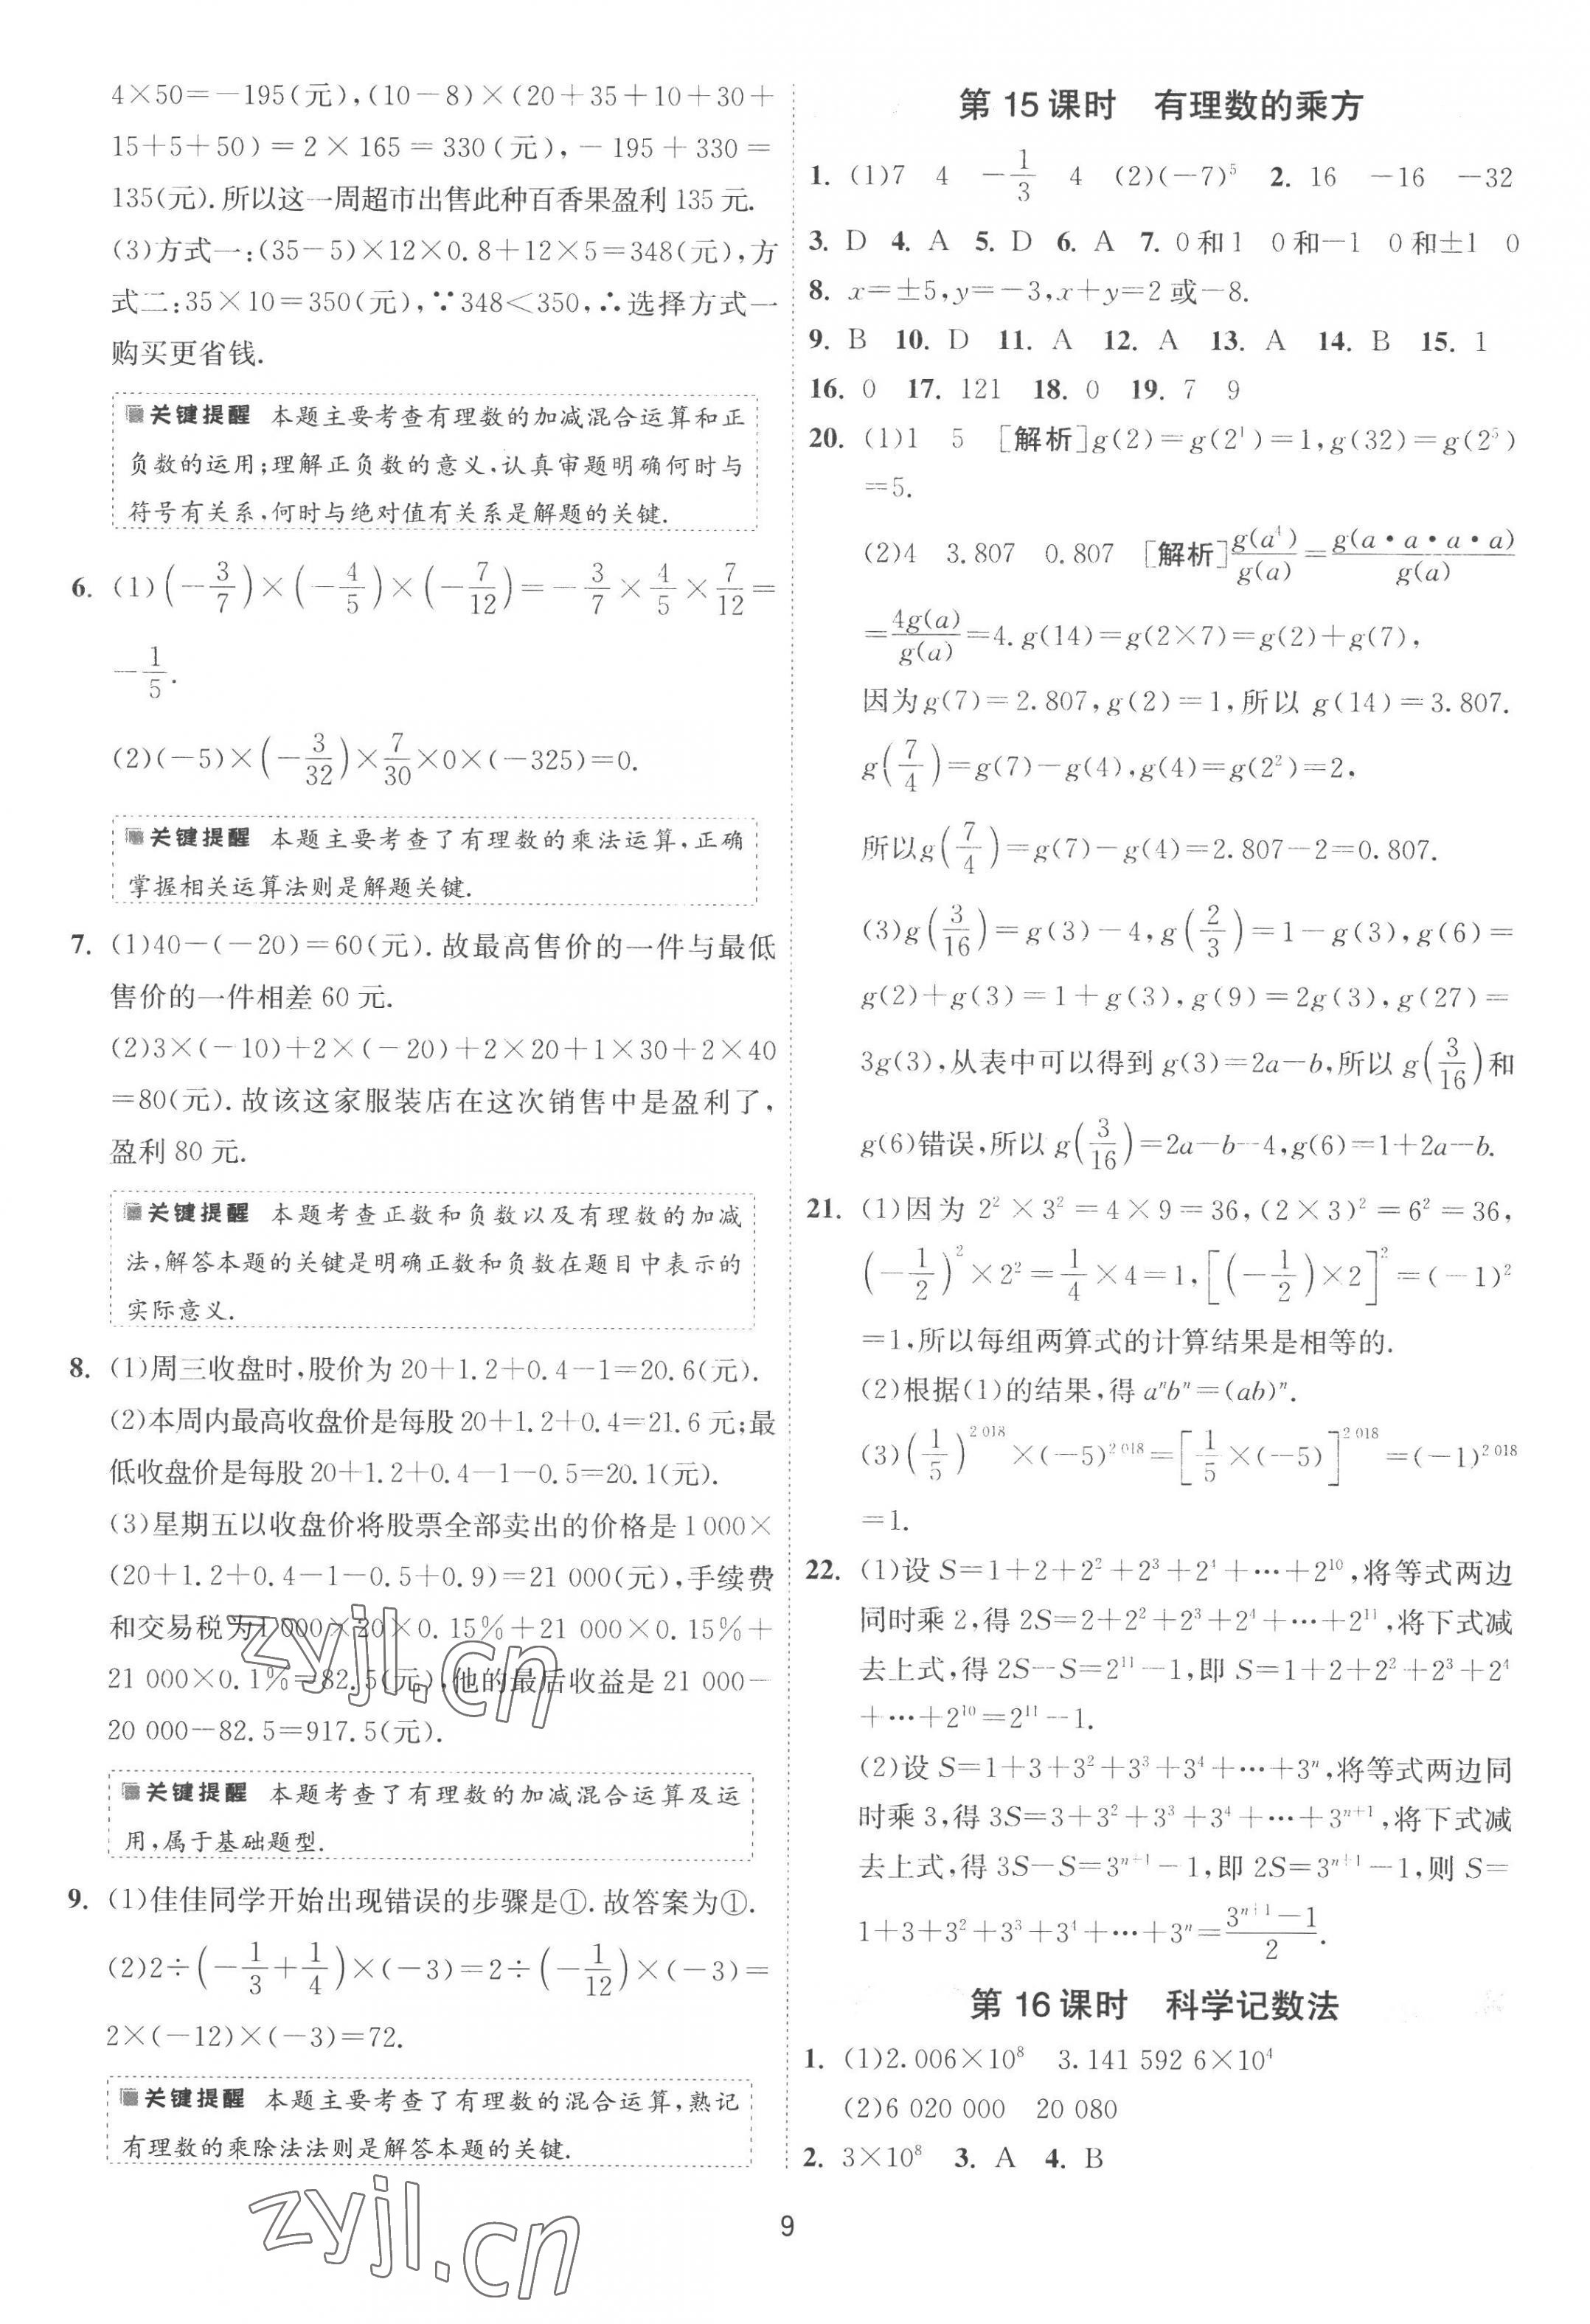 4×50=-195(元),(10-8)×(20+35+10+30+
15+5+50)=2×165=330(元),-195+330=
135(元).所以这一周超市出售此种百香果盈利135元.
(3)方式一:(35-5)×12×0.8+12×5=348(元),方
式二:35×10=350(元),∵348<350,∴选择方式一
购买更省钱.
关键提醒 本题主要考查有理数的加减混合运算和正
负数的运用;理解正负数的意义,认真审题明确何时与
符号有关系,何时与绝对值有关系是解题的关键.
6. (1)(-3/7)×(-4/5)×(-7/12)=-3/7×4/5×7/12=
-1/5.
(2)(-5)×(-3/32)×7/30×0×(-325)=0.
关键提醒 本题主要考查了有理数的乘法运算,正确
掌握相关运算法则是解题关键.
7. (1)40-(-20)=60(元).故最高售价的一件与最低
售价的一件相差60元.
(2)3×(-10)+2×(-20)+2×20+1×30+2×40
=80(元).故该这家服装店在这次销售中是盈利了,
盈利80元.
关键提醒 本题考查正数和负数以及有理数的加减
法,解答本题的关键是明确正数和负数在题目中表示的
实际意义.
8. (1)周三收盘时,股价为20+1.2+0.4-1=20.6(元).
(2)本周内最高收盘价是每股20+1.2+0.4=21.6元;最
低收盘价是每股20+1.2+0.4-1-0.5=20.1(元).
(3)星期五以收盘价将股票全部卖出的价格是1 000×
(20+1.2+0.4-1-0.5+0.9)=21 000(元),手续费
和交易税为1 000×20×0.15%+21 000×0.15%+
21 000×0.1%=82.5(元),他的最后收益是21 000-
20 000-82.5=917.5(元).
关键提醒 本题考查了有理数的加减混合运算及运
用,属于基础题型.
9. (1)佳佳同学开始出现错误的步骤是①.故答案为①.
(2)2÷(-1/3+1/4)×(-3)=2÷(-1/12)×(-3)=
2×(-12)×(-3)=72.
关键提醒 本题主要考查了有理数的混合运算,熟记
有理数的乘除法法则是解答本题的关键.
第15课时 有理数的乘方
1. (1)7 4 -1/3 4 (2)(-7)⁵ 2. 16 -16 -32
3. D 4. A 5. D 6. A 7. 0和1 0和-1 0和±1 0
8. x=±5,y=-3,x+y=2或-8.
9. B 10. D 11. A 12. A 13. A 14. B 15. 1
16. 0 17. 121 18. 0 19. 7 9
20. (1)1 5 [解析]g(2)=g(2¹)=1,g(32)=g(2⁵)
=5.
(2)4 3.807 0.807 [解析]g(a⁴)/g(a)=g(a·a·a·a)/g(a)
=4g(a)/g(a)=4.g(14)=g(2×7)=g(2)+g(7),
因为g(7)=2.807,g(2)=1,所以g(14)=3.807.
g(7/4)=g(7)-g(4),g(4)=g(2²)=2,
所以g(7/4)=g(7)-g(4)=2.807-2=0.807.
(3)g(3/16)=g(3)-4,g(2/3)=1-g(3),g(6)=
g(2)+g(3)=1+g(3),g(9)=2g(3),g(27)=
3g(3),从表中可以得到g(3)=2a-b,所以g(3/16)和
g(6)错误,所以g(3/16)=2a-b-4,g(6)=1+2a-b.
21. (1)因为2²×3²=4×9=36,(2×3)²=6²=36,
(-1/2)²×2²=1/4×4=1,[(-1/2)×2]²=(-1)²
=1,所以每组两算式的计算结果是相等的.
(2)根据(1)的结果,得aⁿbⁿ=(ab)ⁿ.
(3)(1/5)^2 018×(-5)^2 018=[1/5×(-5)]^2 018=(-1)^2 018
=1.
22. (1)设S=1+2+2²+2³+2⁴+…+2¹⁰,将等式两边
同时乘2,得2S=2+2²+2³+2⁴+…+2¹¹,将下式减
去上式,得2S-S=2¹¹-1,即S=1+2+2²+2³+2⁴
+…+2¹⁰=2¹¹-1.
(2)设S=1+3+3²+3³+3⁴+…+3ⁿ,将等式两边同
时乘3,得3S=3+3²+3³+3⁴+…+3ⁿ⁺¹,将下式减
去上式,得3S-S=3ⁿ⁺¹-1,即2S=3ⁿ⁺¹-1,则S=
1+3+3²+3³+3⁴+…+3ⁿ=(3ⁿ⁺¹-1)/2.
第16课时 科学记数法
1. (1)2.006×10⁸ 3.141 592 6×10⁴
(2)6 020 000 20 080
2. 3×10⁸ 3. A 4. B
9
zyjl.cn
zyjl.cn